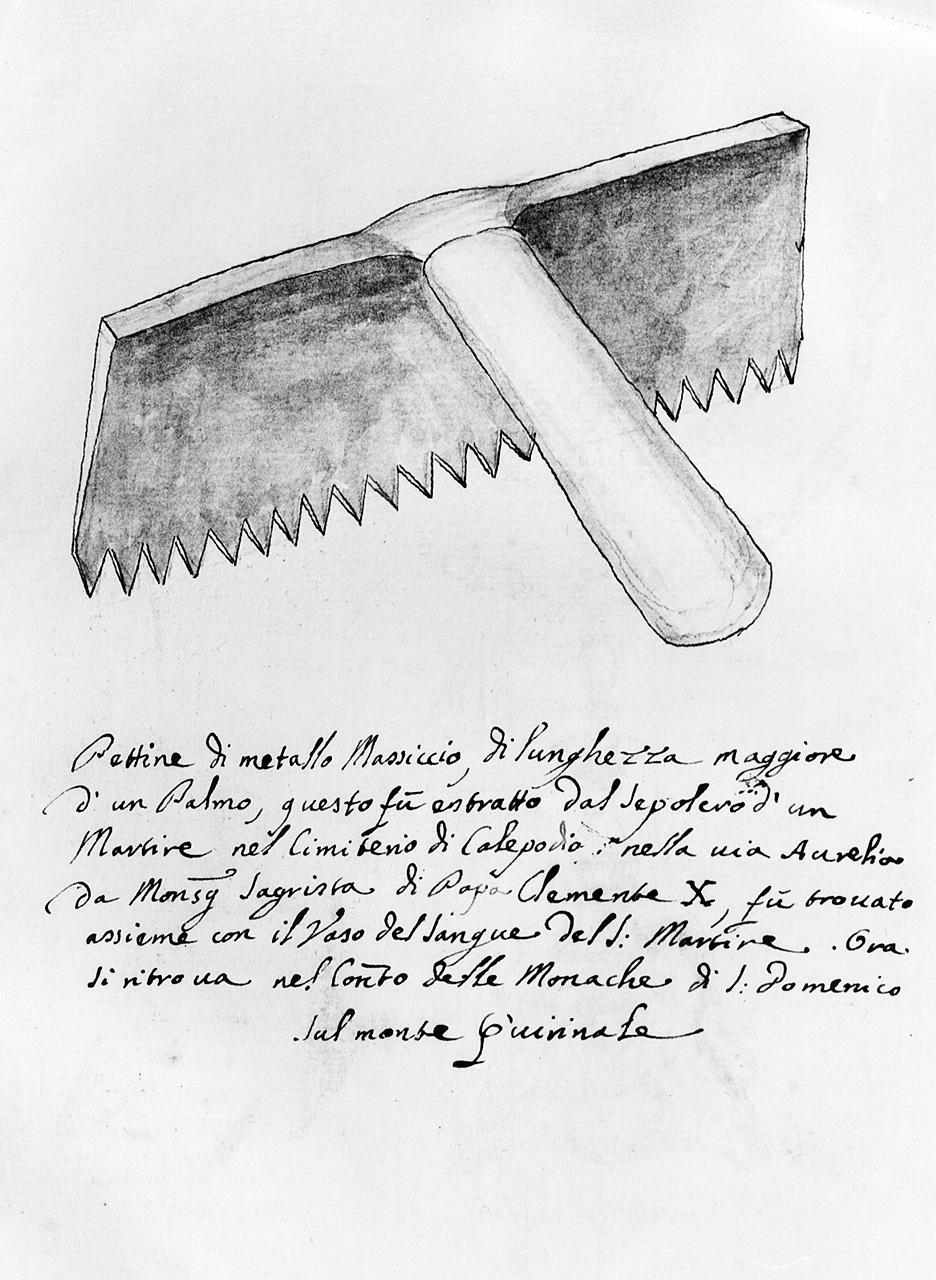 Pettine di metallo Massiccio, di lunghezza maggiore
d' un Palmo, questo fù estratto dal sepolcro d' un
Martire nel Cimiterio di Calepodio nella uia Aurelia
da Monsg.r Sagrista di Papa Clemente X, fù trouato
assieme con il Vaso del sangue del S: Martire. Ora
si ritroua nel Con.to delle Monache di S: Domenico
sul monte Quirinale